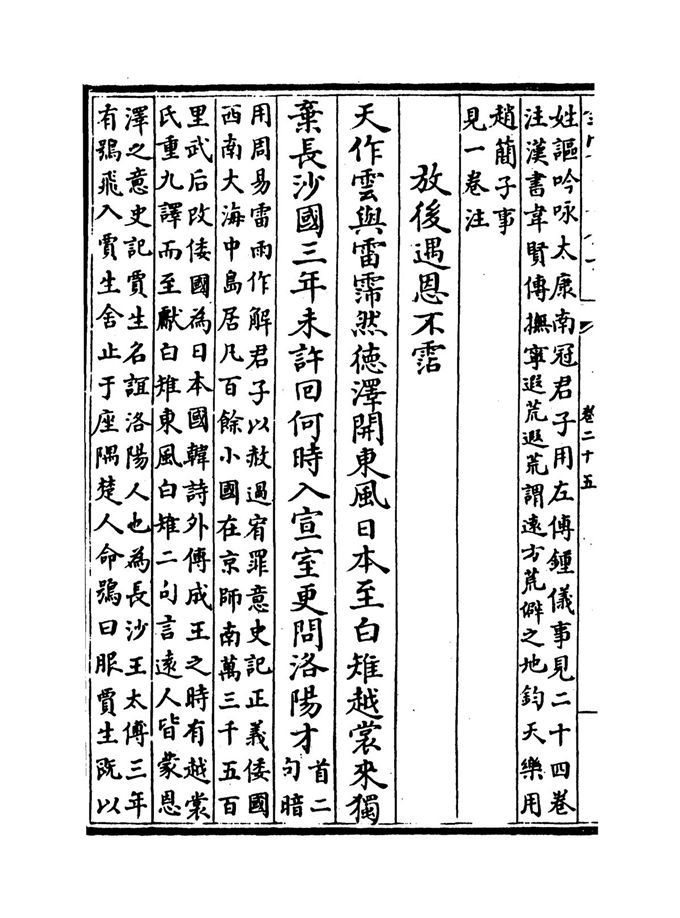 卷二十五
姓謳吟咏太康南冠君子用左傳鍾儀事見二十四卷
注漢書韋賢傳撫寧遐荒遐荒謂遠方荒僻之地鈞天樂用
趙簡子事
見一卷注
放後遇恩不霑
天作雲與雷霈然德澤開東風日本至白雉越裳來獨
棄長沙國三年未許回何時入宣室更問洛陽才
首二
句暗
用周易雷雨作解君子以赦過宥罪意史記正義倭國
西南大海中島居凡百餘小國在京師南萬三千五百
里武后改倭國為日本國韓詩外傳成王之時有越裳
氏重九譯而至獻白雉東風白雉二句言遠人皆蒙恩
澤之意史記賈生名誼洛陽人也為長沙王太傅三年
有鴞飛入賈生舍止于座隅楚人命鴞曰服賈生既以